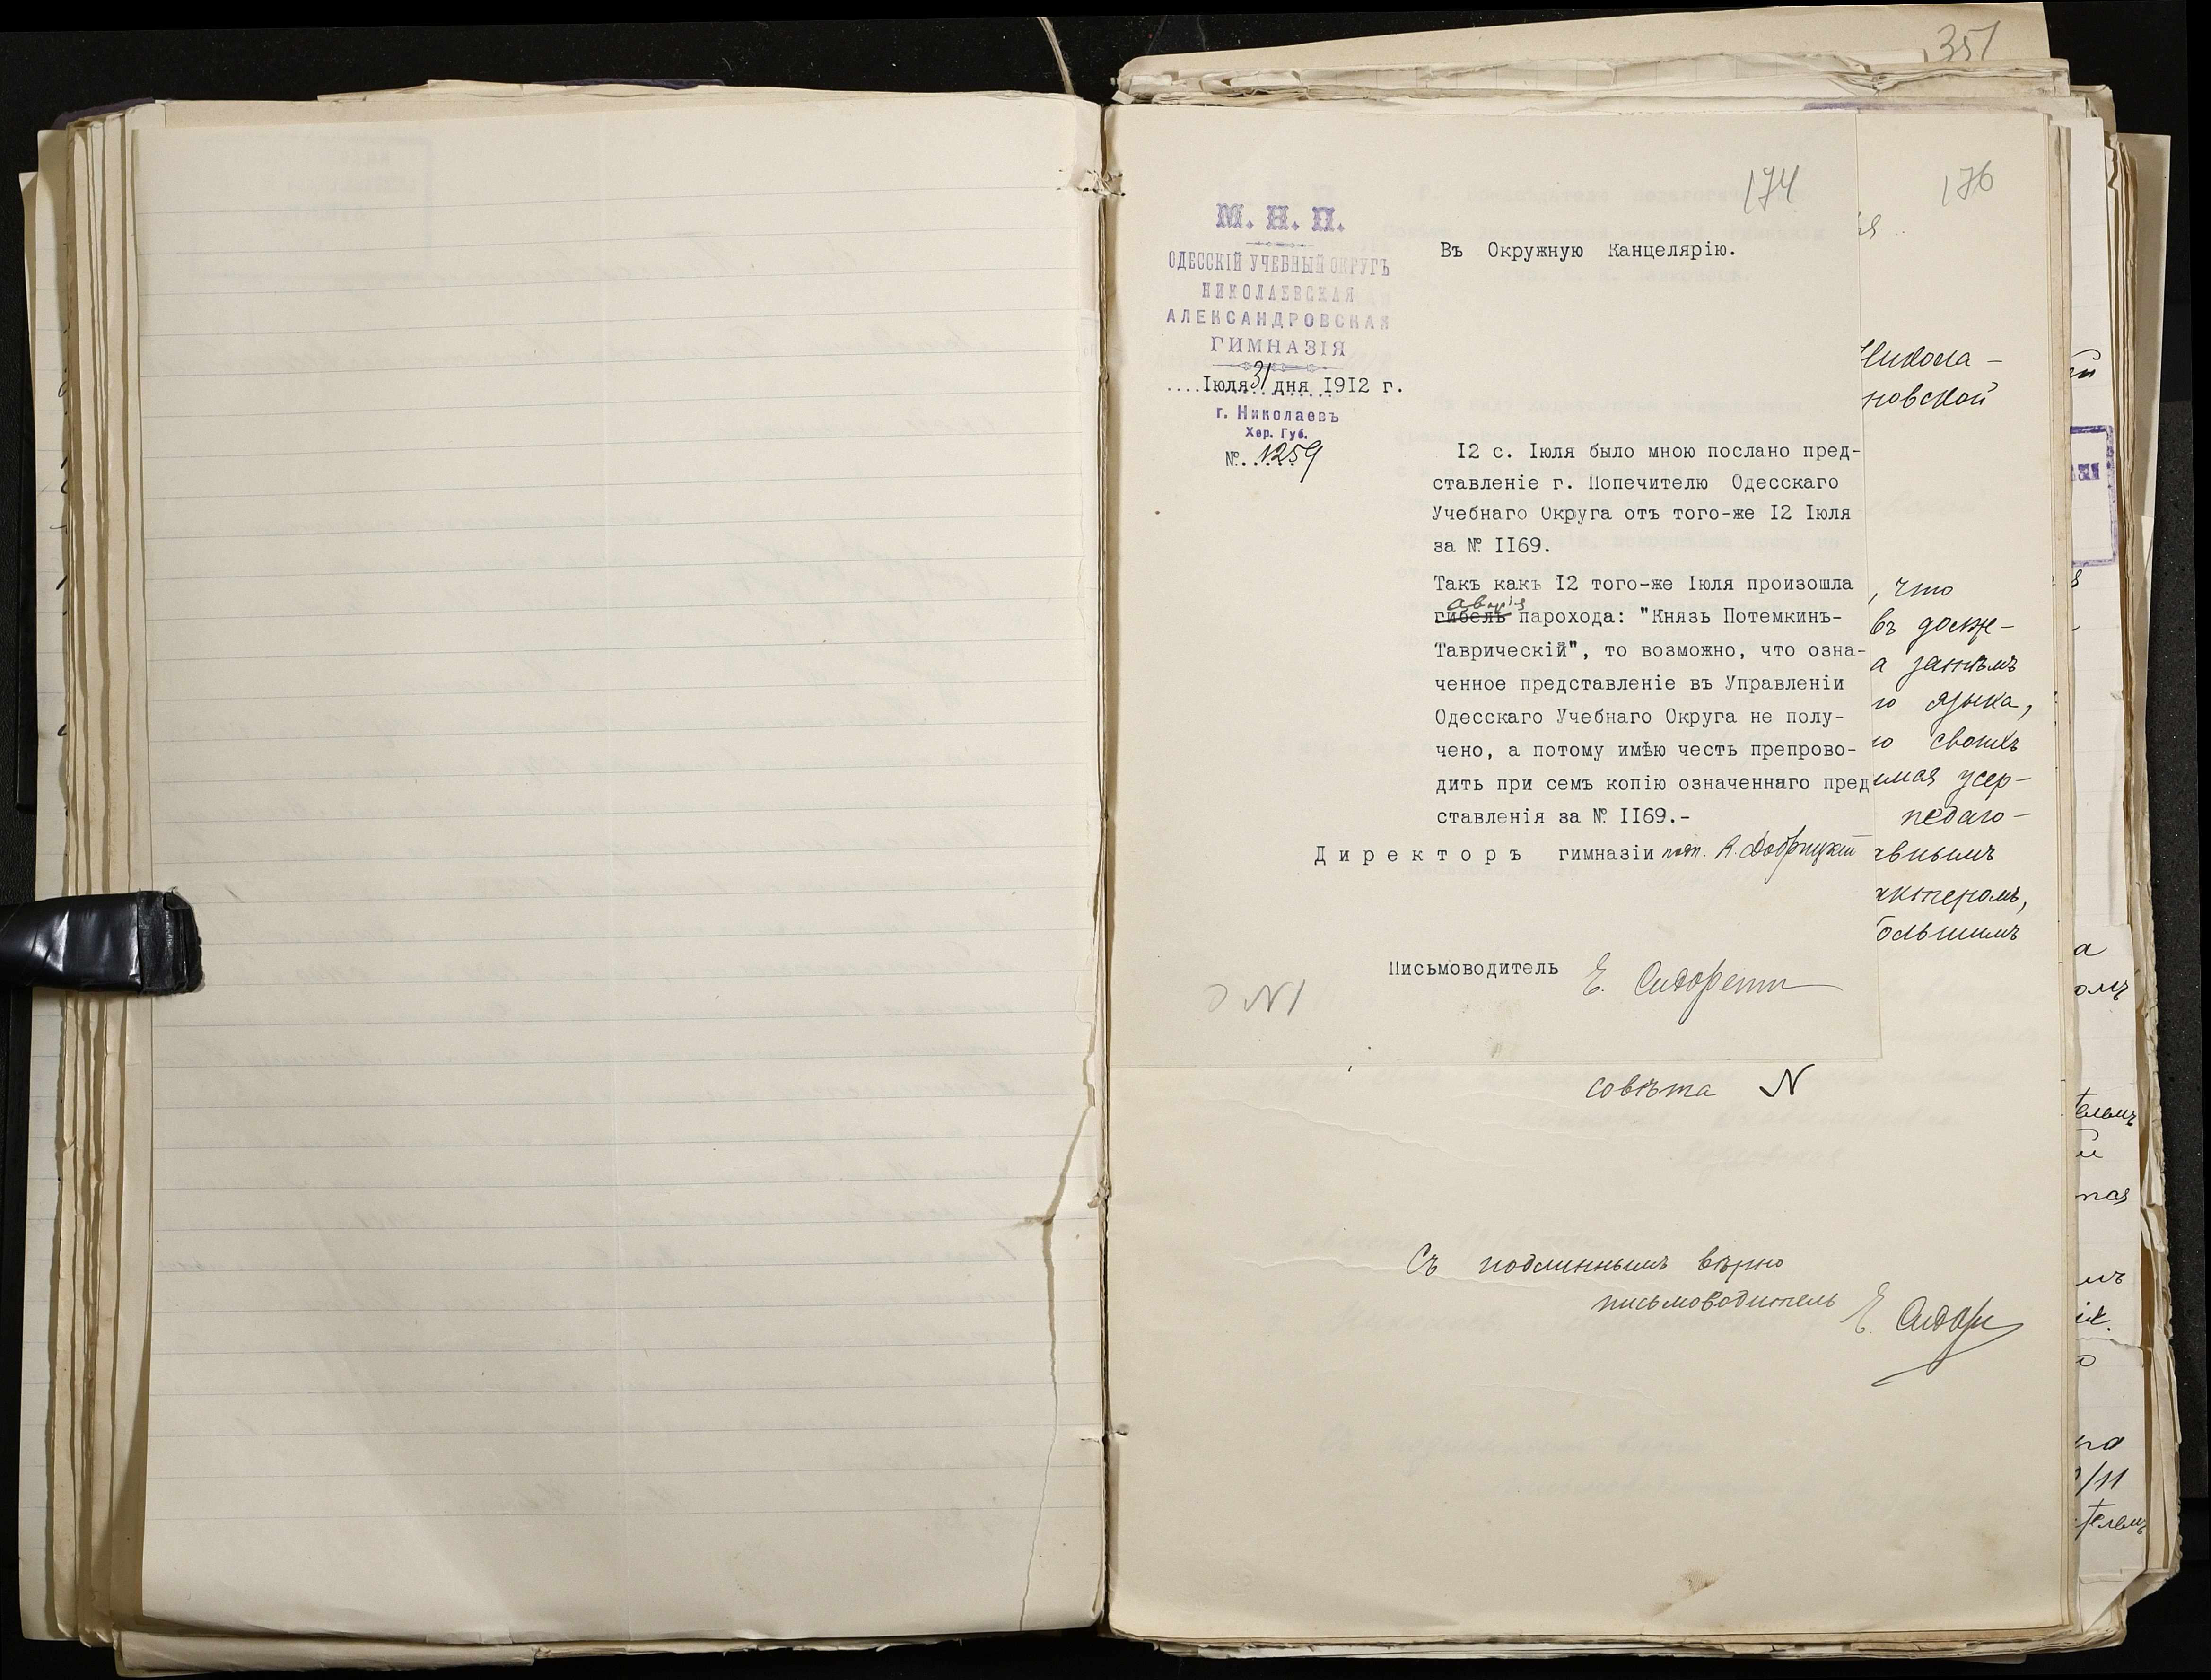 351
174
176
М. Н. П.
ОДЕССКІЙ УЧЕБНЫЙ ОКРУГЪ
НИКОЛАЕВСКАЯ
АЛЕКСАНДРОВСКАЯ
ГИМНАЗІЯ
....Іюля 31 дня 1912 г.
г. Николаевъ
Хер. Губ.
№. 1259
Въ Окружную Канцелярію.
I2 с. Іюля было мною послано пред-
ставленіе г. Попечителю Одесскаго
Учебнаго Округа отъ того-же I2 Іюля
за № II69.
Такъ какъ I2 того-же Іюля произошла
аварія
гибель парохода: "Князь Потемкинъ-
Таврическій", то возможно, что озна-
ченное представленіе въ Управленіи
Одесскаго Учебнаго Округа не полу-
чено, а потому имѣю честь препрово-
дить при семъ копію означеннаго пред
ставленія за № II69.-
Директоръ гимназіи подп. К. Добрицкій
Письмоводитель Е.
№1
Никола-
новской
, что
въ долж-
а затѣмъ
го языка,
ю своихъ
имая усер-
педаго-
внымъ
актеромъ,
большимъ
совѣта №
Съ подлиннымъ вѣрно
письмоводитель Е.